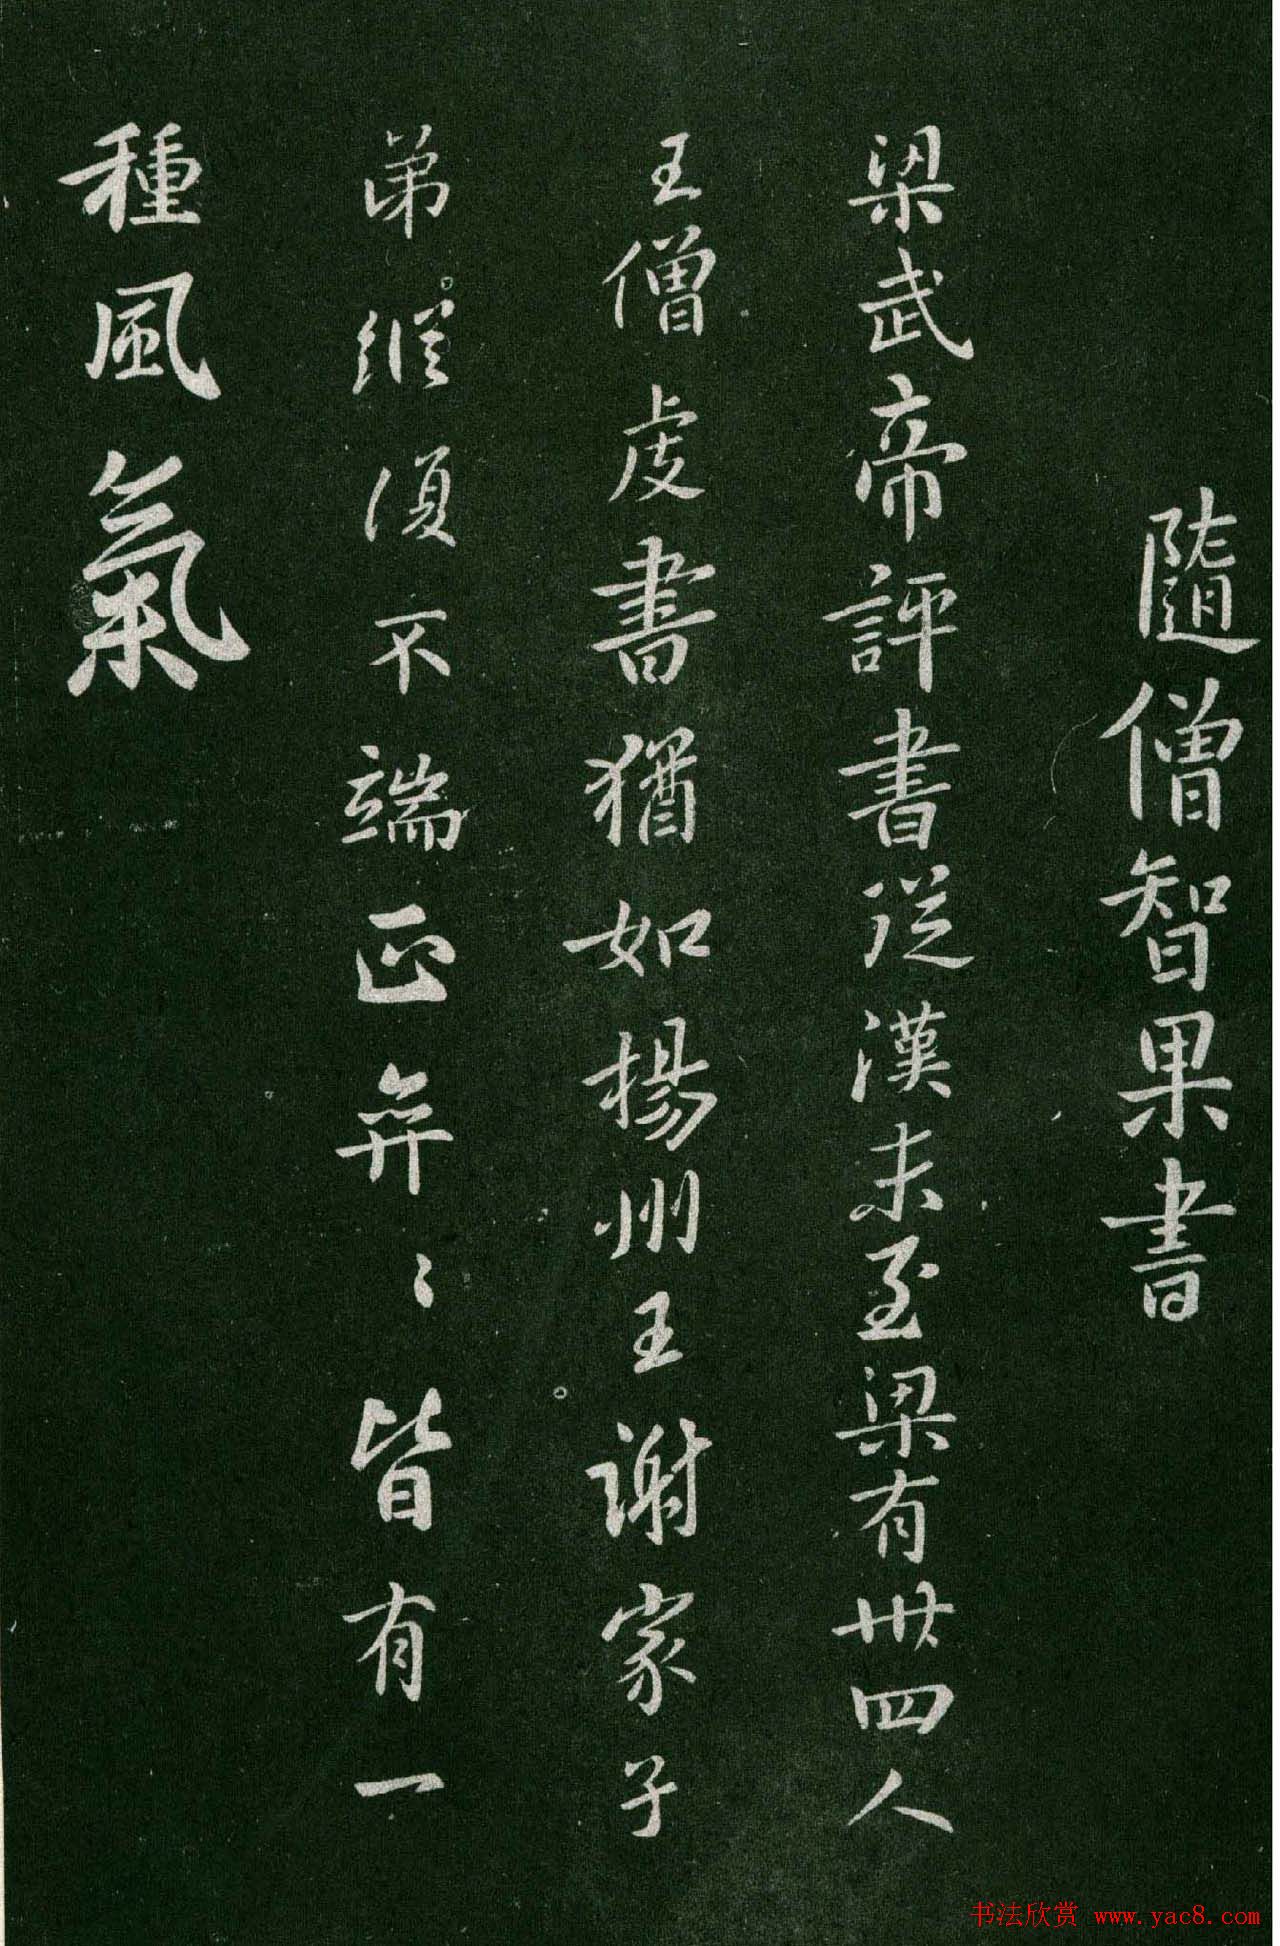 隨僧智果書
梁武帝評書從漢末至梁有卅四人
王僧虔書猶如揚州王謝家子
弟縱須不端正弈〻皆有一
種風氣
书法欣赏 www.yac8.com